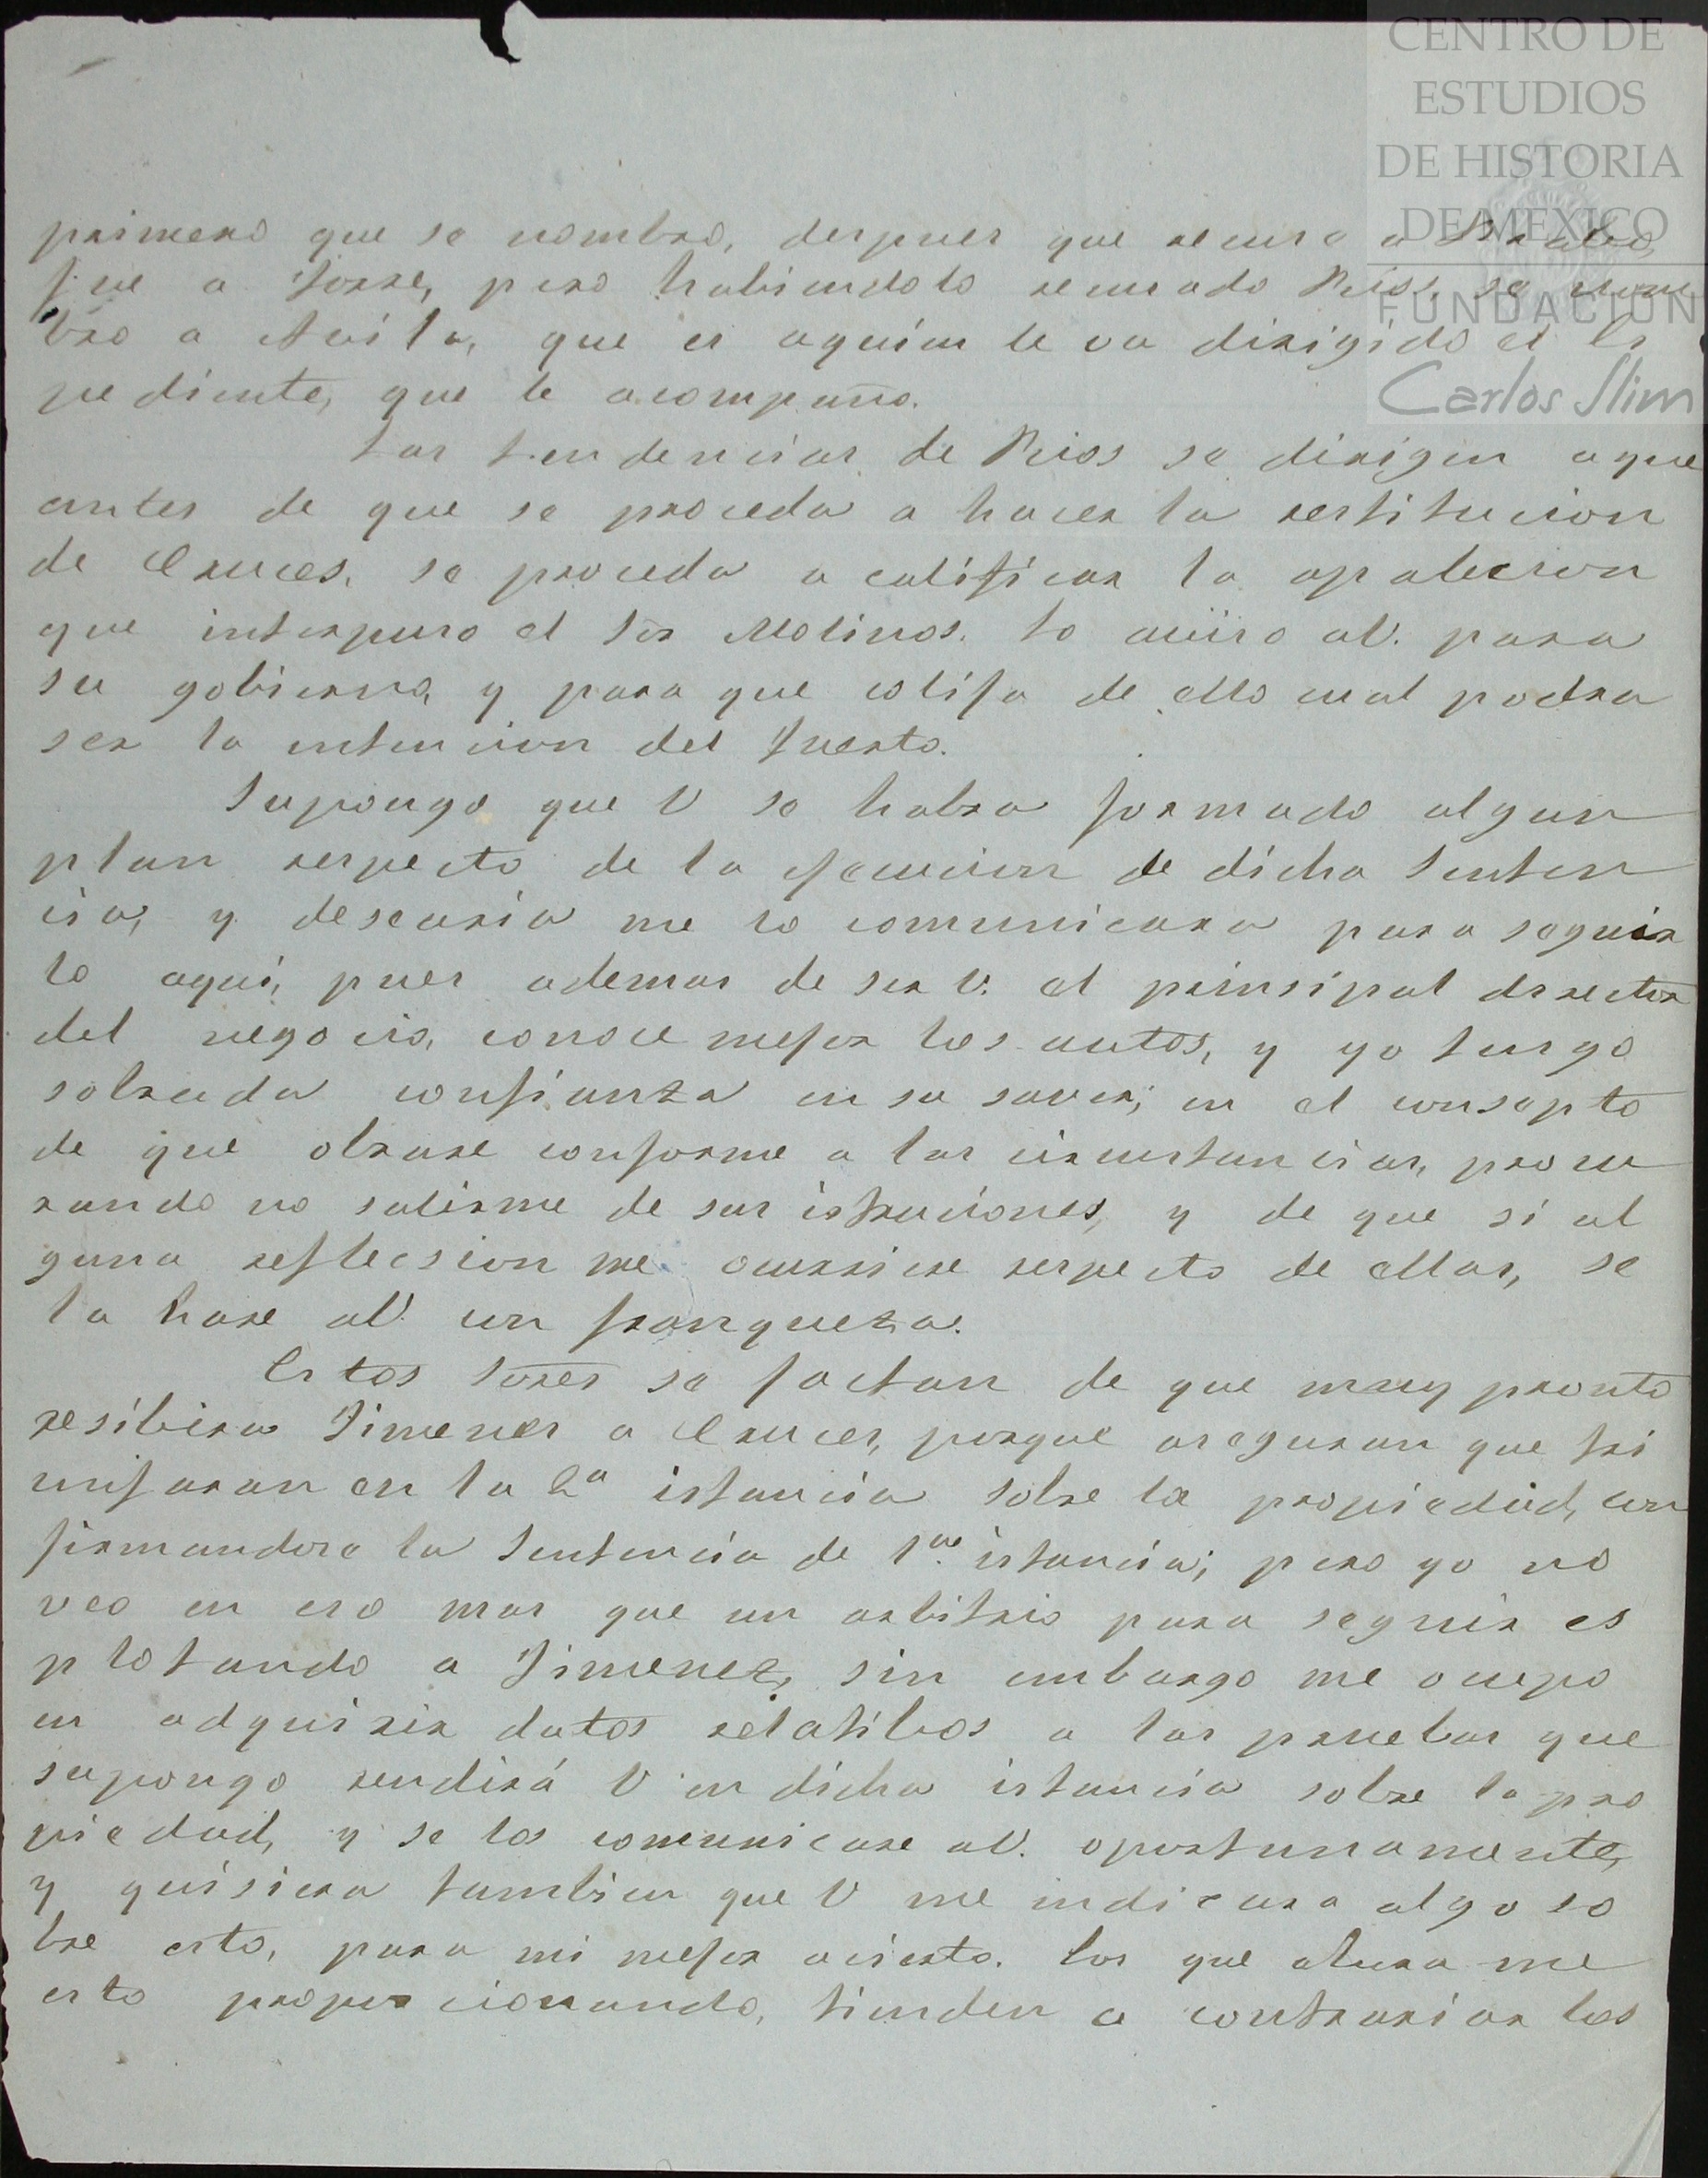 CENTRO DE
ESTUDIOS
DE HISTORIA
DE MÉXICO
FUNDACIÓN
Carlos Slim
primero que se nombro, despues que recuse a
fue a Torre, pero habiendolo recusado Rios, se nom
bro a Avila, que es aquien le va dirigido el Es
pediente, que le acompaño.
Las tendencias de Rios se dirigen aque
antes de que se proceda a hacer la restitucion
de Cruces, se proceda a calificar la apalecion
que interpuso el Sor Molinos. Lo aviso aV. para
su gobierno, y para que colija de ello cual podra
ser la intencion del Tuerto.
Supongo que V se habra formado algun
plan respecto de la ejecucion de dicha Senten
cia, y desearia me lo comunicara para seguir
lo aqui, pues ademas de ser V. el prinsipal director
del negocio, conoce mejor los autos, y yo tengo
sobrada confianza en su saver; en el consepto
de que obrare conforme a las circustancias, procu
rando no salirme de sus istruciones, y de que si al
guna reflecsion me ocurriere respecto de ellas, se
la hare aV. con franqueza.
Estos Sores se jactan de que muy pronto
resibira Jimenes a Cruces, porque aseguran que tri
unfaran en la 2a istancia sobre la propiedad, con
firmandose la Sentencia de 1ra istancia; pero yo no
veo en eso mas que un arbitrio para seguir es
plotando a Jimenez, sin embargo me ocupo
en adquirir datos relatibos a las pruebas que
supongo rendirá V en dicha istancia sobre la pro
piedad, y se los comunicare aV. oportunamente,
y quisiera tambien que V me indicara algo so
bre esto, para mi mejor acierto. Los que ahora me
esto proporcionando, tienden a contrariar los